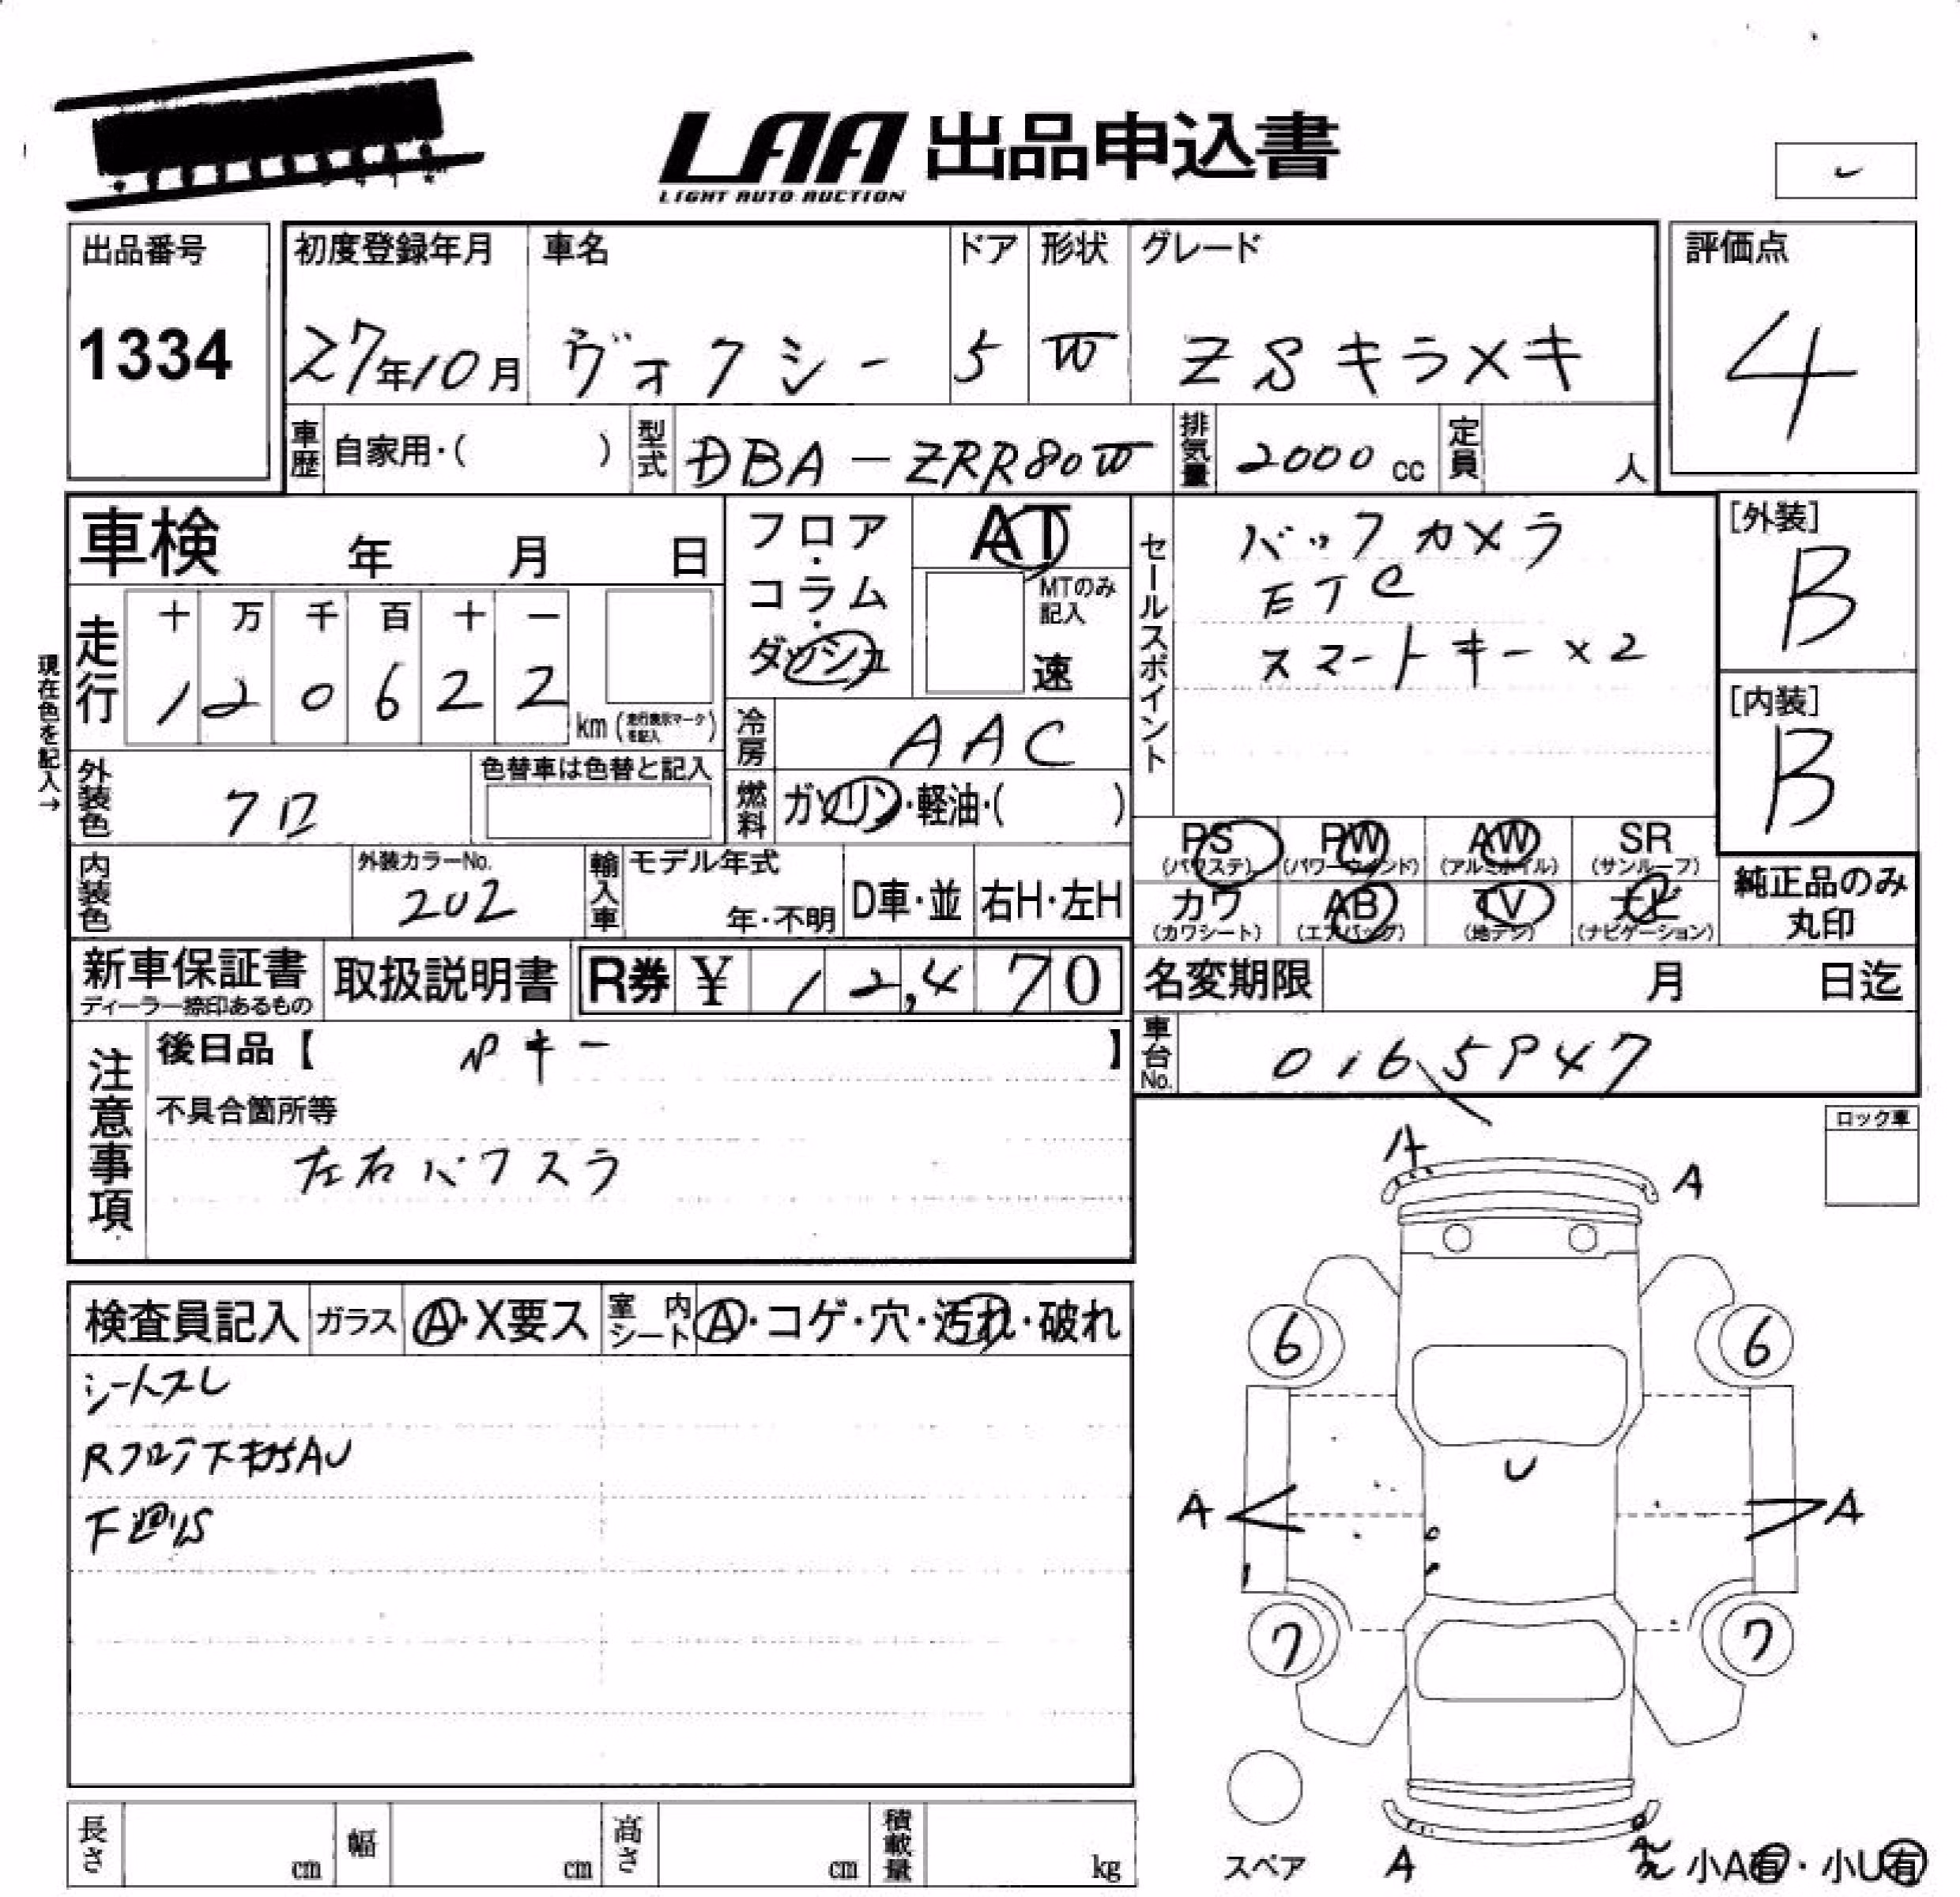 LAA 出品申込書
LIGHT AUTO AUCTION
出品番号
1334
初度登録年月 車名 ドア 形状 グレード
27年10月 ヴォクシー 5 W ZSキラメキ
評価点
4
車歴 自家用・( ) 型式 DBA-ZRR80W 排気量 2000cc 定員 人
車検 年 月 日
フロア・コラム・ダッシュ
AT
MTのみ記入
速
セールスポイント
バックカメラ
ETC
スマートキー×2
[外装]
B
[内装]
B
現在色を記入→
走行
十 万 千 百 十 一
1 2 0 6 2 2
km (走行表示マークを記入)
冷房 AAC
外装色 クロ
色替車は色替と記入
燃料 ガソリン・軽油・( )
PS (パワステ) PW (パワーウィンド) AW (アルミホイル) SR (サンルーフ)
カワ (カワシート) AB (エアバッグ) TV (地デジ) ナビ (ナビゲーション)
純正品のみ丸印
内装色
外装カラーNo.
202
輸入車 モデル年式 年・不明 D車・並 右H・左H
新車保証書
ディーラー捺印あるもの
取扱説明書
R券 ¥ 12,470
名変期限 月 日迄
車台No. 0165947
注意事項
後日品【 キー 】
不具合箇所等
左右パワスラ
ロック車
検査員記入 ガラス A・X要ス 室内シート A・コゲ・穴・汚れ・破れ
シートスレ
下廻りS
A A
6 6
U
A A
7 7
スペア
A
小A有・小U有
長さ cm 幅 cm 高さ cm 積載量 kg